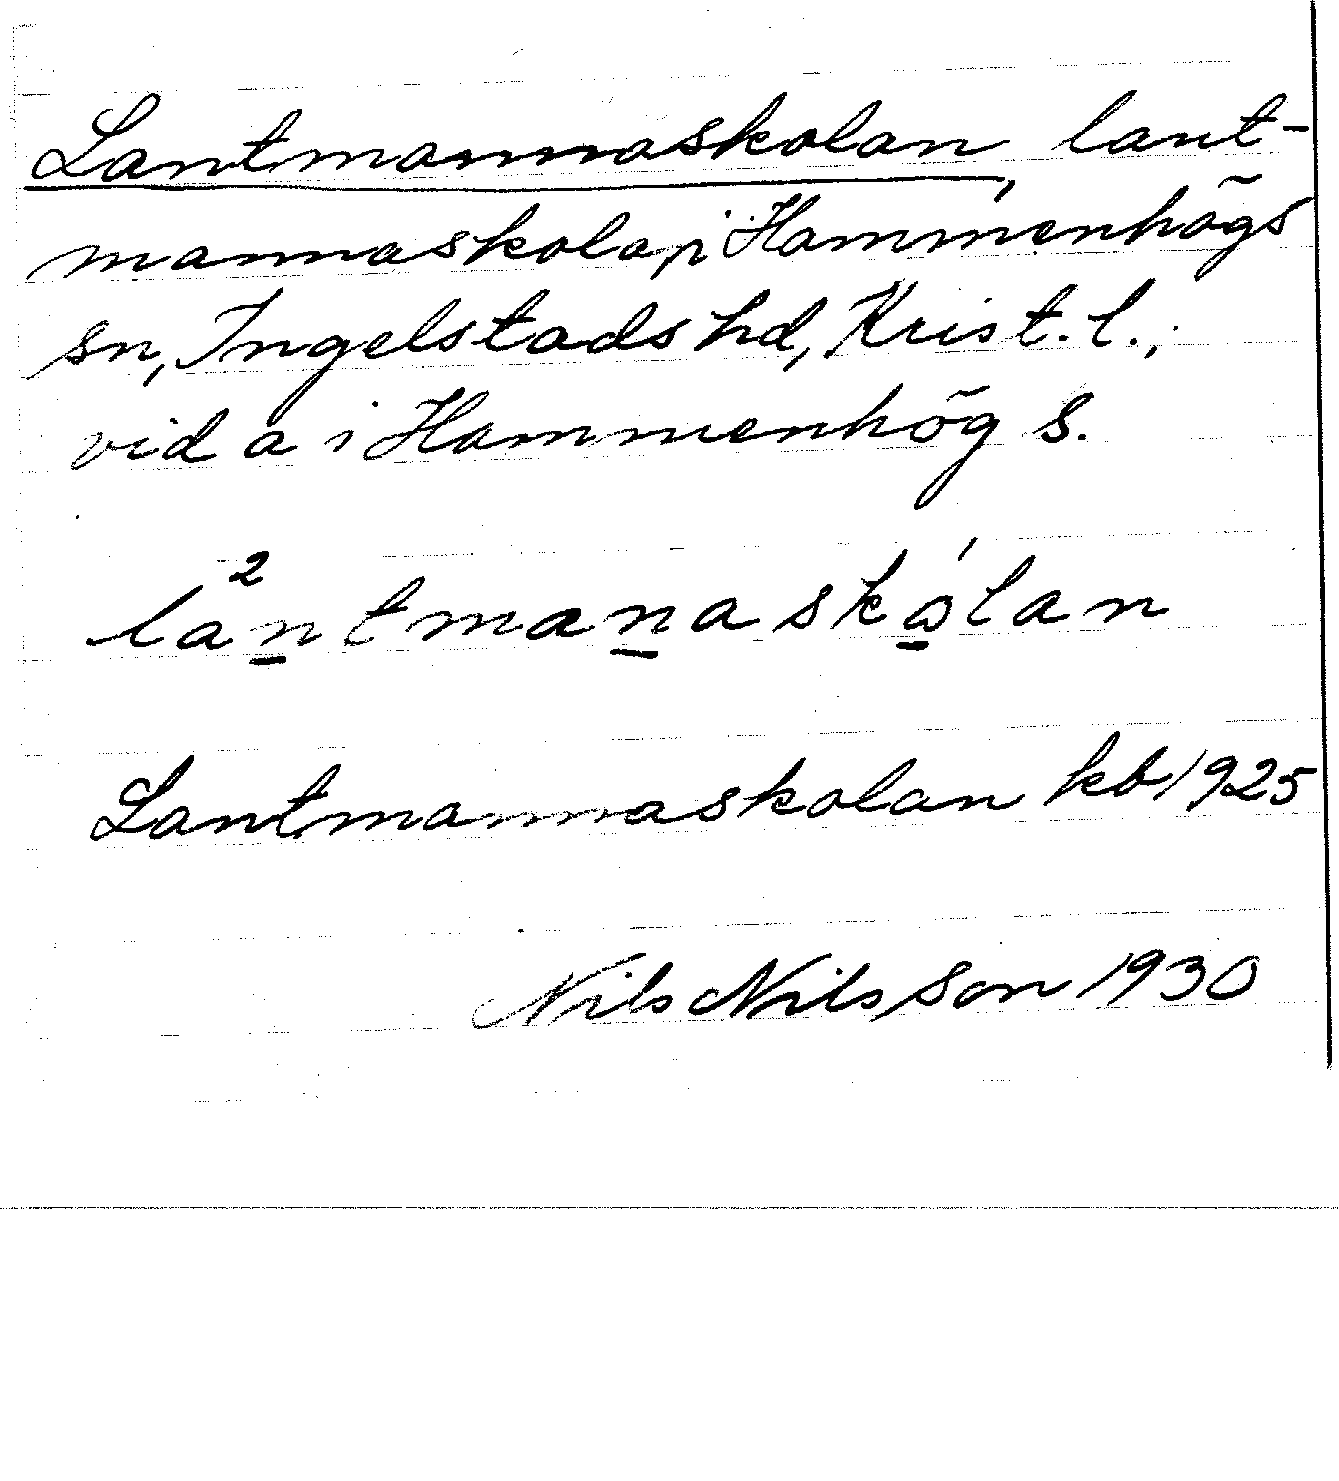 Lantmannaskolan, lant-
mannaskola, i Hammenhögs
sn, Ingelstads hd, Krist. l.,
vid a i Hammenhög S.
la²n̲tman̲asko̲´lan
Lantmannaskolan kb 1925
Nils Nilsson 1930